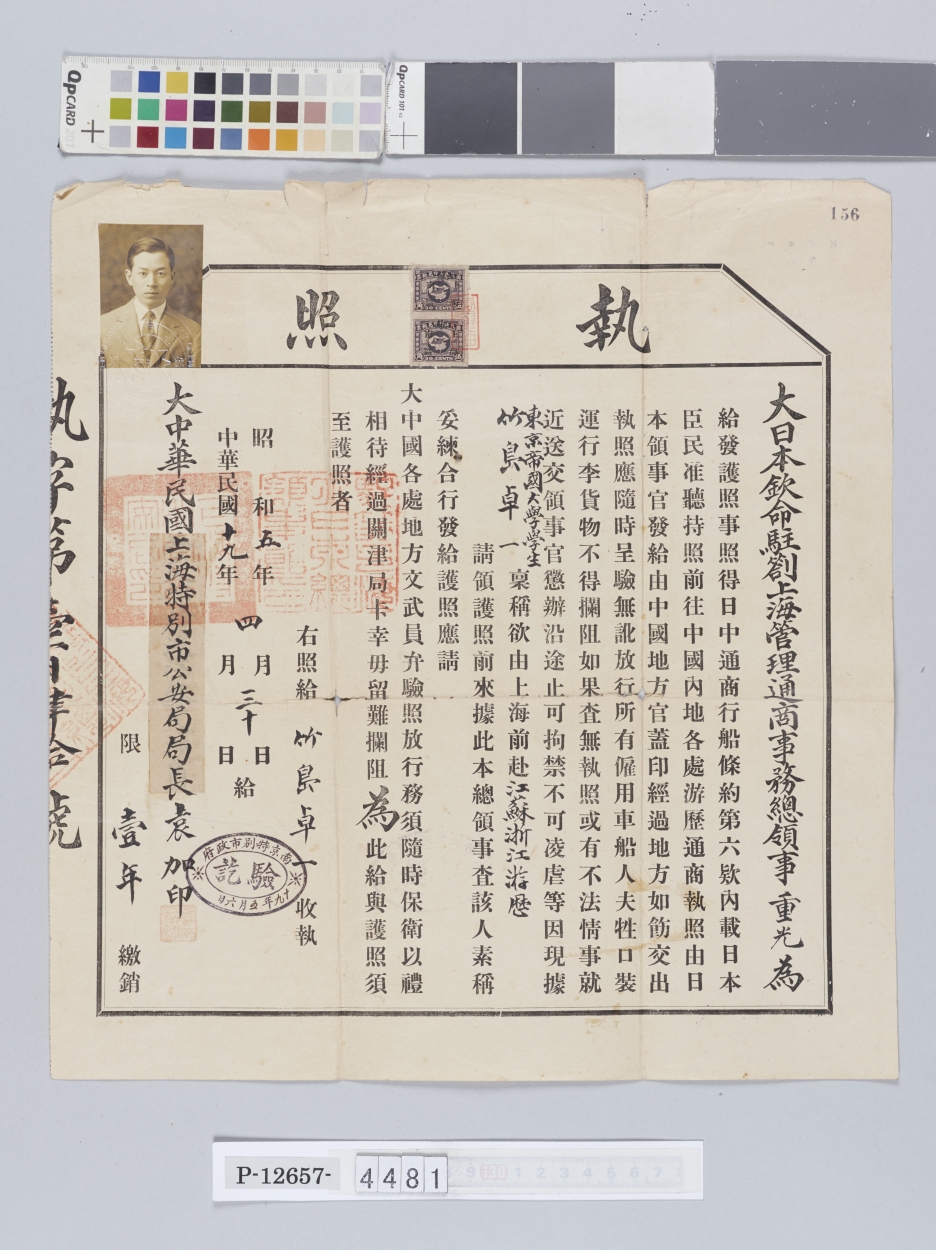 QPCARD 201
QPCARD 101 v3
156
執照
大日本欽命駐劄上海管理通商事務總領事重光為
給發護照事照得日中通商行船條約第六欵內載日本
臣民准聽持照前往中國內地各處游歷通商執照由日
本領事官發給由中國地方官蓋印經過地方如飭交出
執照應隨時呈驗無訛放行所有僱用車船人夫牲口裝
運行李貨物不得攔阻如果查無執照或有不法情事就
近送交領事官懲辦沿途止可拘禁不可凌虐等因現據
東京帝國大學學生
竹島卓一 稟稱欲由上海前赴江蘇浙江游歷
請領護照前來據此本總領事查該人素稱
妥練合行發給護照應請
大中國各處地方文武員弁驗照放行務須隨時保衛以禮
相待經過關津局卡幸毋留難攔阻為此給與護照須
至護照者
右照給 竹島卓一 收執
昭和五年四月三十日
中華民國十九年 月 日 給
大中華民國上海特別市公安局局長袁 加印
南京特別市政府
驗訖
十九年五月六日
限壹年繳銷
執字第壹百肆拾號
P-12657-
4481